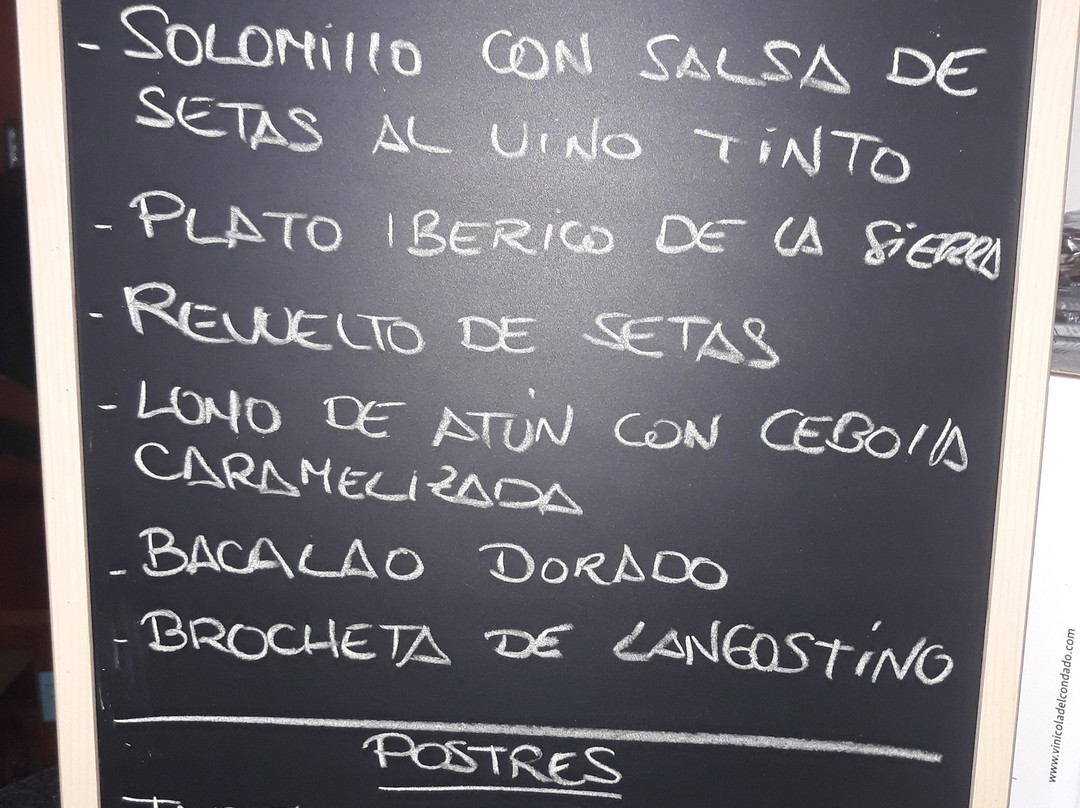 - SOLOMillO CON SALSA DE
SETAS AL VINO TiNTO
- PLATO IBERICO DE LA SiERRA
- REVUELTO DE SETAS
- LOMO DE ATÚN CON CEBOllA
CARAMELiZADA
- BACALAO DORADO
- BROCHETA DE LANGOSTiNO
POSTRES
www.vinicoladelcondado.com